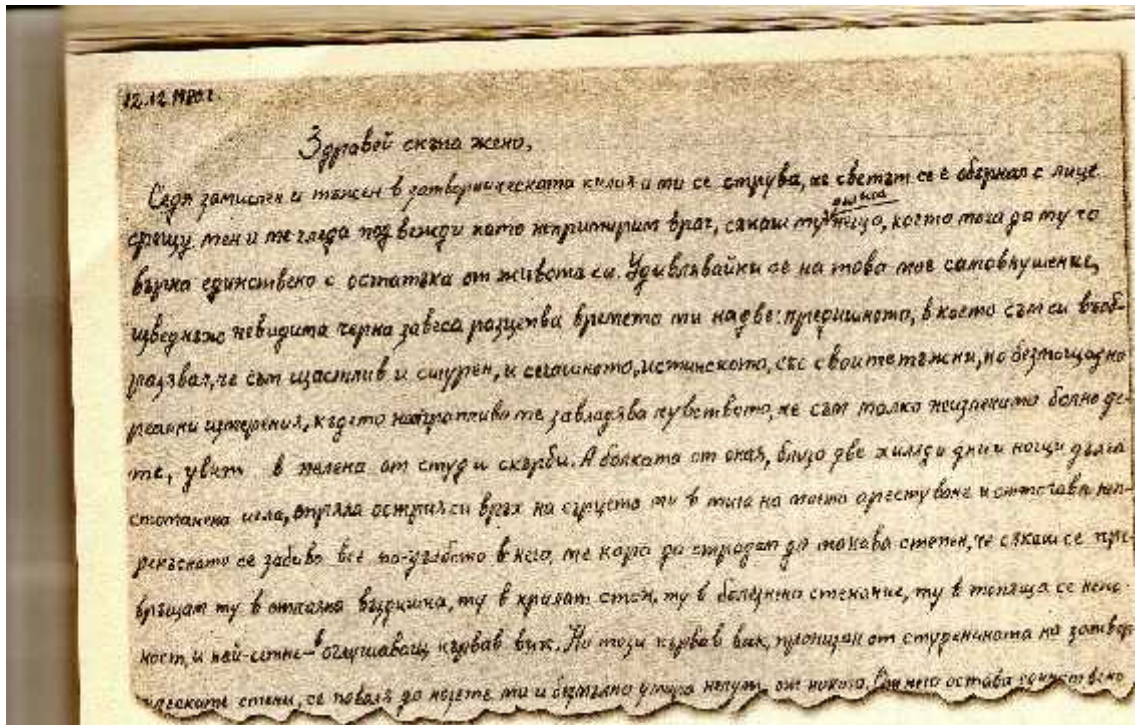 12.12.1980 г.
Здравей скъпа жено,
Седя замислен и тъжен в затворническата килия и ми се струва, че светът се е обърнал с лице
срещу мен и ме гледа под вежди като непримирим враг, сякаш му нещо, което мога да му го
върна единствено с остатъка от живота си. Удивлявайки се на това мое самовнушение,
изведнъж невидима черна завеса разцепва времето ми на две: предишното, в което съм си въоб-
разявал, че съм щастлив и сигурен, и сегашното, истинското, със своите тъжни, но безпощадно
реални измерения, където натрапливо ме завладява чувството, че съм малко неизлечимо болно де-
те, увито в пелена от студ и скърби. А болката от оная, близо две хиляди дни и нощи дълга
стоманена игла, опряла острия си връх на сърцето ми в мига на моето арестуване и оттогава неп-
рекъснато се забива все по-дълбоко в него, ме кара да страдам до такава степен, че сякаш се пре-
връщам ту в въздишка, ту в стон, ту в болезнено стенание, ту в топяща се
и най-сетне в оглушаващ кървав вик. Но този кървав вик, пронизан от студенината на затвор-
ническите стени, се поваля до нозете ми и безмълвно умира нечут от никого. От него остава единствено